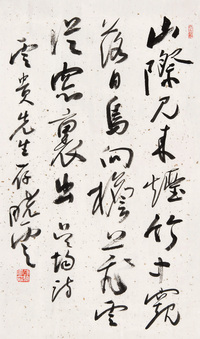 山際見来煙竹中窺
落日鳥向檐上飛雲
從窗裏出吴均詩
雲贵先生存曉雲